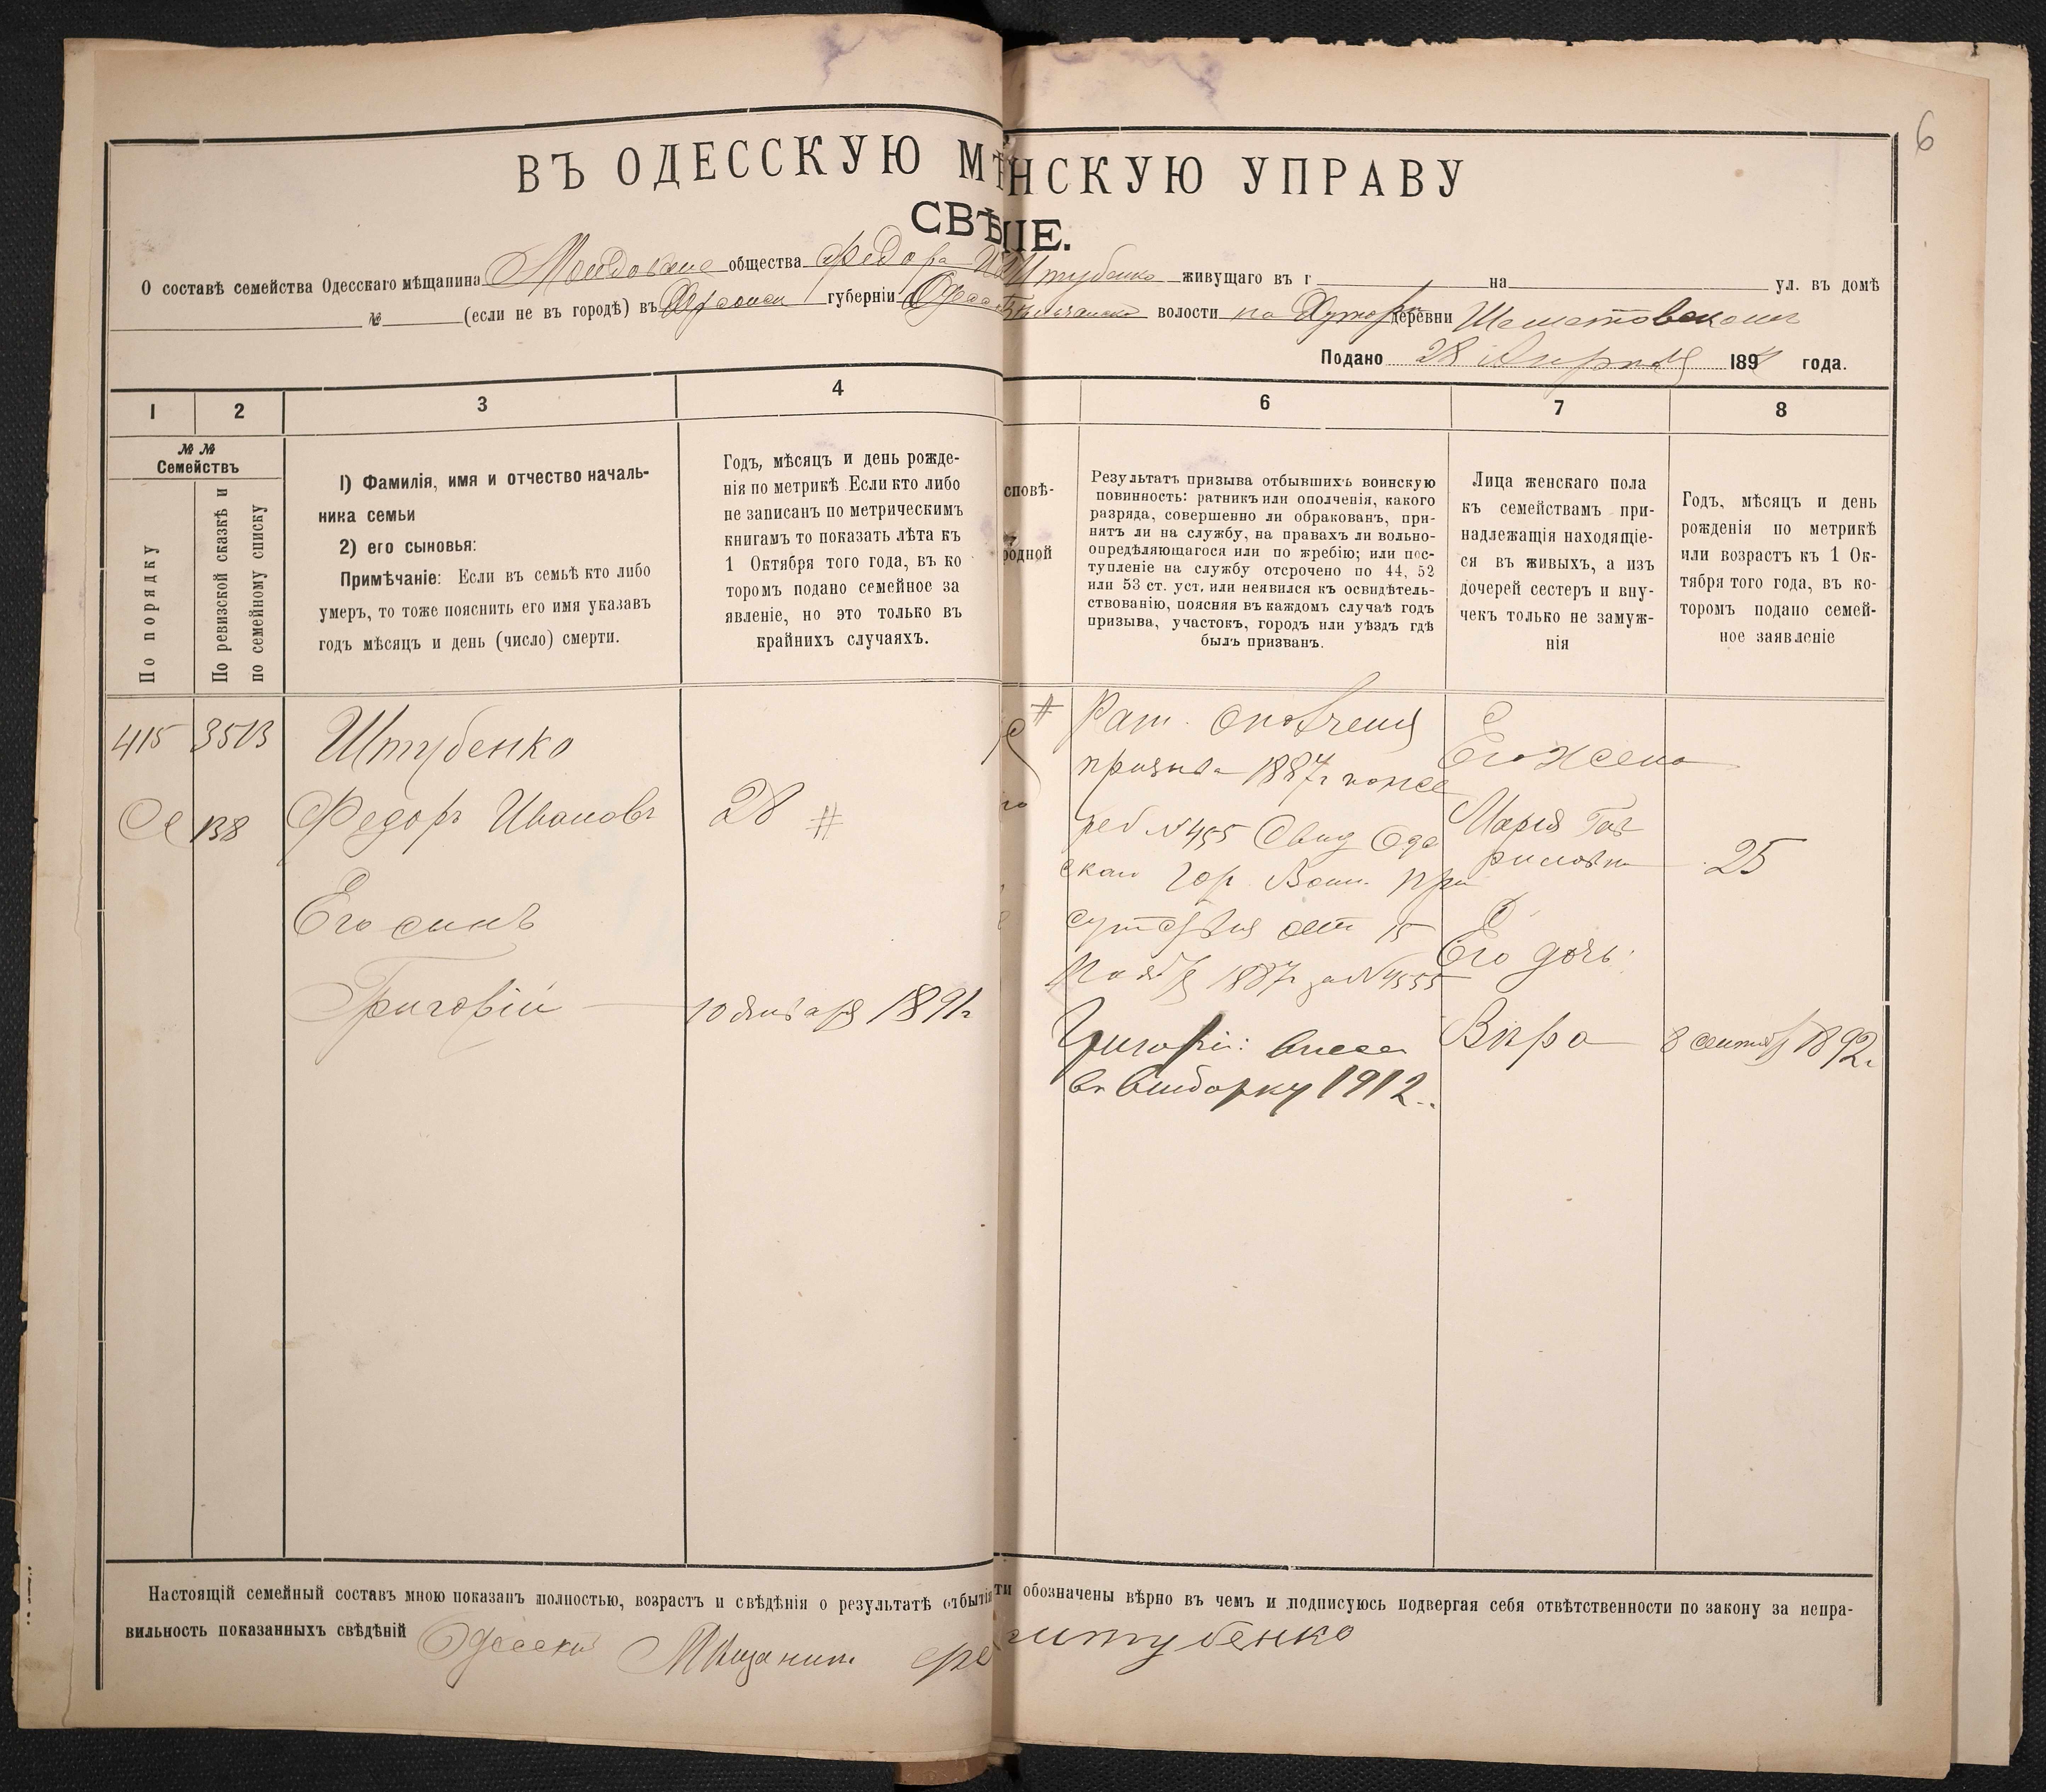 6
ВЪ ОДЕССКУЮ МѢ НСКУЮ УПРАВУ
СВѢ ІЕ.
О составѣ семейства Одесскаго мѣщанина общества Федора Штубенко живущаго въ г на ул. въ домѣ
№ (если не въ городѣ) въ Херсонск губерніи Одесс волости на Хутор деревни
Подано 28 Апреля 189 года.
1 2 3 4 6 7 8
№ № Семействъ
По порядку
По ревизской сказкѣ и по семейному списку
1) Фамилія, имя и отчество началь-
ника семьи
2) его сыновья:
Примѣчаніе: Если въ семьѣ кто либо
умеръ, то тоже пояснить его имя указавъ
годъ мѣсяцъ и день (число) смерти.
Годъ, мѣсяцъ и день рожде-
нія по метрикѣ Если кто либо
не записанъ по метрическимъ
книгамъ то показать лѣта къ
1 Октября того года, въ ко
торомъ подано семейное за
явленіе, но это только въ
крайнихъ случаяхъ.
сповѣ-
родной
Результатъ призыва отбывшихъ воинскую
повинность: ратникъ или ополченія, какого
разряда, совершенно ли обракованъ, при-
нятъ ли на службу, на правахъ ли вольно-
опредѣляющагося или по жребію; или пос-
тупленіе на службу отсрочено по 44, 52
или 53 ст. уст. или неявился къ освидѣтель-
ствованію, поясняя въ каждомъ случаѣ годъ
призыва, участокъ, городъ или уѣздъ гдѣ
былъ призванъ.
Лица женскаго пола
къ семействамъ при-
надлежащія находящіе-
ся въ живыхъ, а изъ
дочерей сестеръ и вну-
чекъ только не замуж-
нія
Годъ, мѣсяцъ и день
рожденія по метрикѣ
или возрастъ къ 1 Ок-
тября того года, въ ко-
торомъ подано семей-
ное заявленіе
415 3513 Штубенко
138 Федоръ Ивановъ 28 #
Его сынъ
Григорій 10 Января 1891г
# Рат. Ополченія
призыва 1887г
№455 Свид Оде
скаго Гор. Воин. При
сутствія от 15
Ноября 1887г за №4555
Григорій: внесен
въ выборку 1912..
Его Жена
Марія Гав
риловна 25
Его дочь.
Вѣра 8 сентября 1892г
Настоящій семейный составъ мною показанъ полностью, возрастъ и свѣдѣнія о результатѣ отбытія ти обозначены вѣрно въ чемъ и подписуюсь подвергая себя отвѣтственности по закону за непра-
вильность показанныхъ свѣдѣній Одесскій Мѣщанинъ Фе штубенко